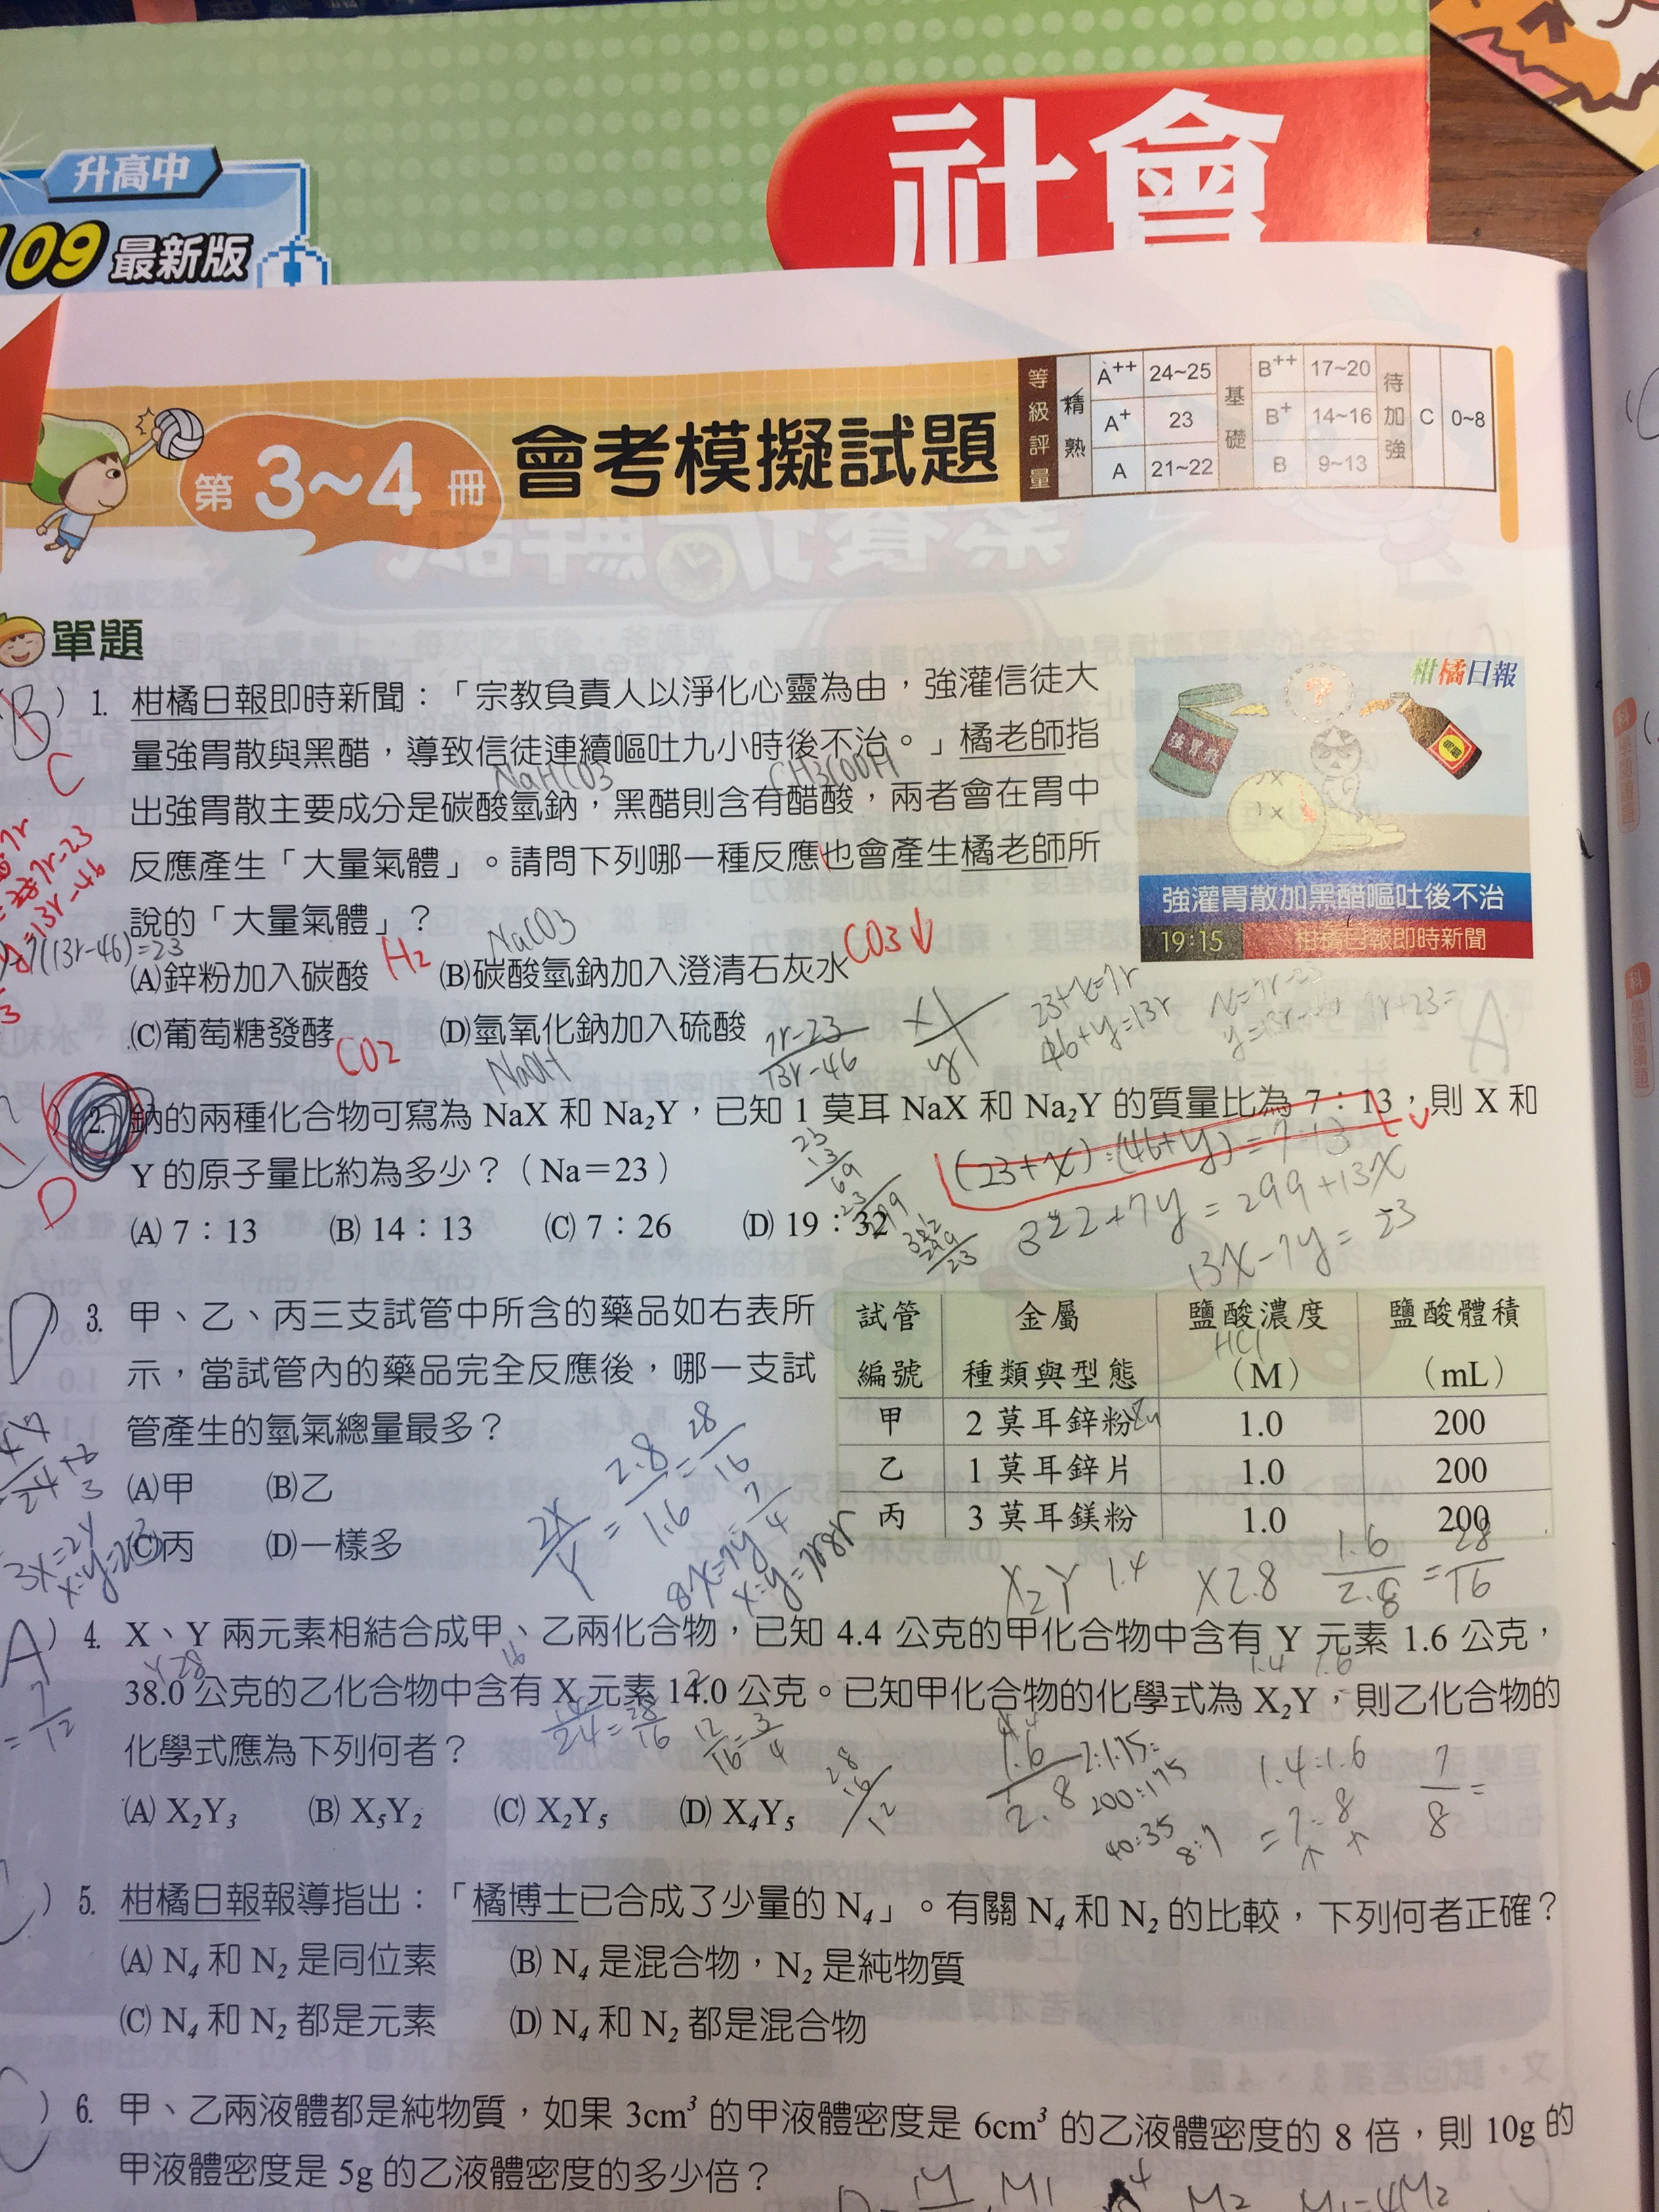 社會
升高中
109最新版
第3~4冊 會考模擬試題
等級評量 精熟 A++ 24~25 基礎 B++ 17~20 待加強 C 0~8
A+ 23 B+ 14~16
A 21~22 B 9~13
單題
(B) 1. 柑橘日報即時新聞：「宗教負責人以淨化心靈為由，強灌信徒大
C
量強胃散與黑醋，導致信徒連續嘔吐九小時後不治。」橘老師指
NaHCO3 CH3COOH
出強胃散主要成分是碳酸氫鈉，黑醋則含有醋酸，兩者會在胃中
反應產生「大量氣體」。請問下列哪一種反應也會產生橘老師所
說的「大量氣體」？
NaCO3
(A)鋅粉加入碳酸 H2 (B)碳酸氫鈉加入澄清石灰水 CO3↓
(C)葡萄糖發酵 CO2 (D)氫氧化鈉加入硫酸
NaOH
柑橘日報
強胃散
強灌胃散加黑醋嘔吐後不治
19:15 柑橘日報即時新聞
7(13r-46)=23
7r-23
13r-46
x
y
23+x=7r
46+y=13r
2. 鈉的兩種化合物可寫為 NaX 和 Na2Y，已知 1 莫耳 NaX 和 Na2Y 的質量比為 7：13，則 X 和
D
Y 的原子量比約為多少？（Na＝23）
(23+x):(46+y)=7:13
(A) 7：13 (B) 14：13 (C) 7：26 (D) 19：32
322+7y=299+13x
13x-7y=23
(D) 3. 甲、乙、丙三支試管中所含的藥品如右表所
示，當試管內的藥品完全反應後，哪一支試
管產生的氫氣總量最多？
(A)甲 (B)乙
(C)丙 (D)一樣多
試管編號 金屬種類與型態 鹽酸濃度（M） 鹽酸體積（mL）
HCl
甲 2 莫耳鋅粉 Zn 1.0 200
乙 1 莫耳鋅片 1.0 200
丙 3 莫耳鎂粉 1.0 200
2X/Y = 2.8/1.6 = 28/16
8x=7y
3x=2y
X2Y 1.4 X2.8 1.6/2.8 = 28/16
(A) 4. X、Y 兩元素相結合成甲、乙兩化合物，已知 4.4 公克的甲化合物中含有 Y 元素 1.6 公克，
38.0 公克的乙化合物中含有 X 元素 14.0 公克。已知甲化合物的化學式為 X2Y，則乙化合物的
化學式應為下列何者？
14/24 = 28/16
12/16 = 3/4
(A) X2Y3 (B) X5Y2 (C) X2Y5 (D) X4Y5
2:1.75=
200:175
40:35
8:7
1.4:1.6
=7:8
7/8=
(C) 5. 柑橘日報報導指出：「橘博士已合成了少量的 N4」。有關 N4 和 N2 的比較，下列何者正確？
(A) N4 和 N2 是同位素 (B) N4 是混合物，N2 是純物質
(C) N4 和 N2 都是元素 (D) N4 和 N2 都是混合物
(C) 6. 甲、乙兩液體都是純物質，如果 3cm3 的甲液體密度是 6cm3 的乙液體密度的 8 倍，則 10g 的
甲液體密度是 5g 的乙液體密度的多少倍？